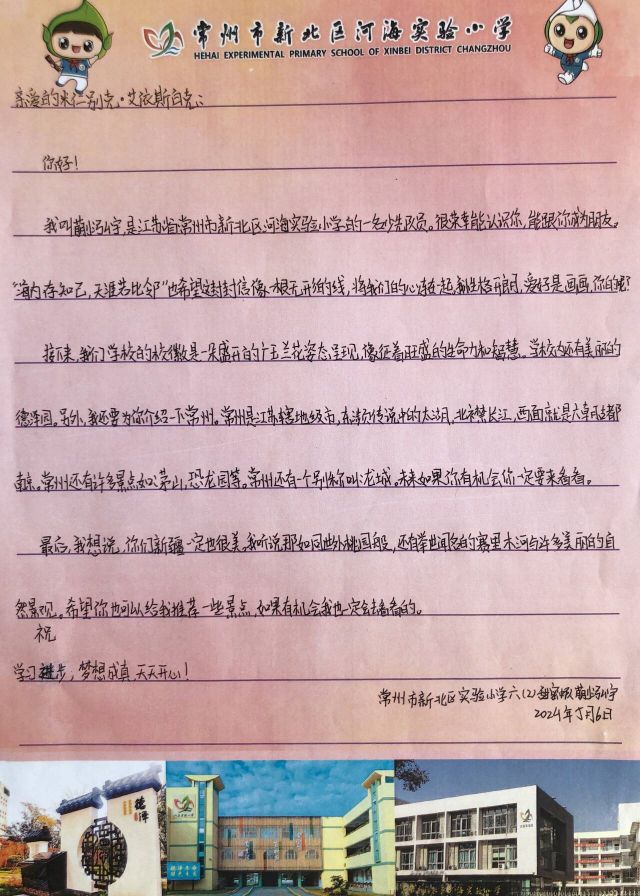 常州市新北区河海实验小学
HEHAI EXPERIMENTAL PRIMARY SCHOOL OF XINBEI DISTRICT CHANGZHOU
亲爱的米仁别克·艾依斯白克:
你好!
我叫,是江苏省常州市新北区河海实验小学的一名少先队员。很荣幸能认识你,能跟你成为朋友。
"海内存知己,天涯若比邻"也希望这封封信像一根无形的线,将我们的心连在一起,我性格开朗,爱好是画画,你的呢?
接下来,我们学校的校徽是一朵盛开的广玉兰花姿态呈现,像征着旺盛的生命力和智慧。学校内还有美丽的
德泽园。另外,我还要为你介绍一下常州。常州是江苏辖地级市,东濒传说中的太湖,北襟长江,西面就是六朝古都
南京。常州还有许多景点如:茅山,恐龙园等。常州还有一个别称叫龙城。未来如果你有机会你一定要来看看。
最后,我想说,你们新疆一定也很美,我听说那如同世外桃园般,还有举世闻名的赛里木河与许多美丽的自
然景观。希望你也可以给我推荐一些景点,如果有机会我也一定会去看看的。
祝
学习进步,梦想成真,天天开心!
常州市新北区实验小学六(2)
2024年5月6日
德泽